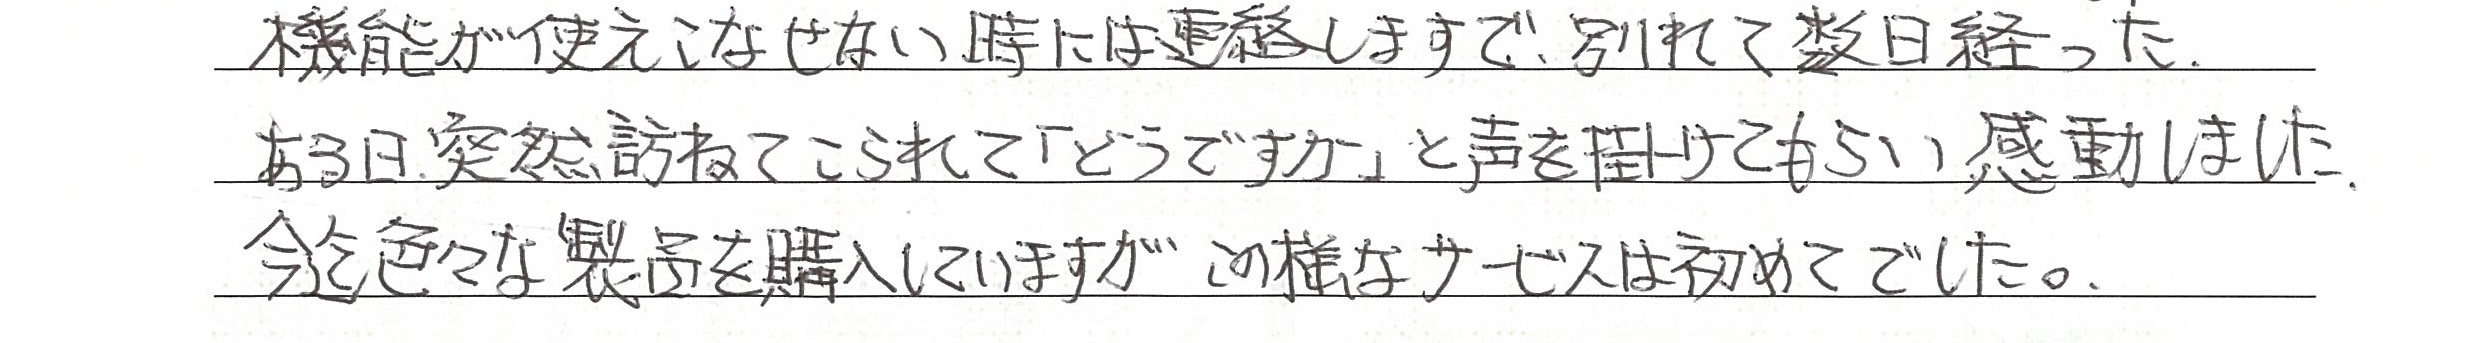 機能が使えこなせない時には連絡しますで、別れて数日経った.
ある日.突然訪ねてこられて「どうですか」と声を掛けてもらい感動しました.
今迄色々な製品を購入していますがこの様なサービスは初めてでした。